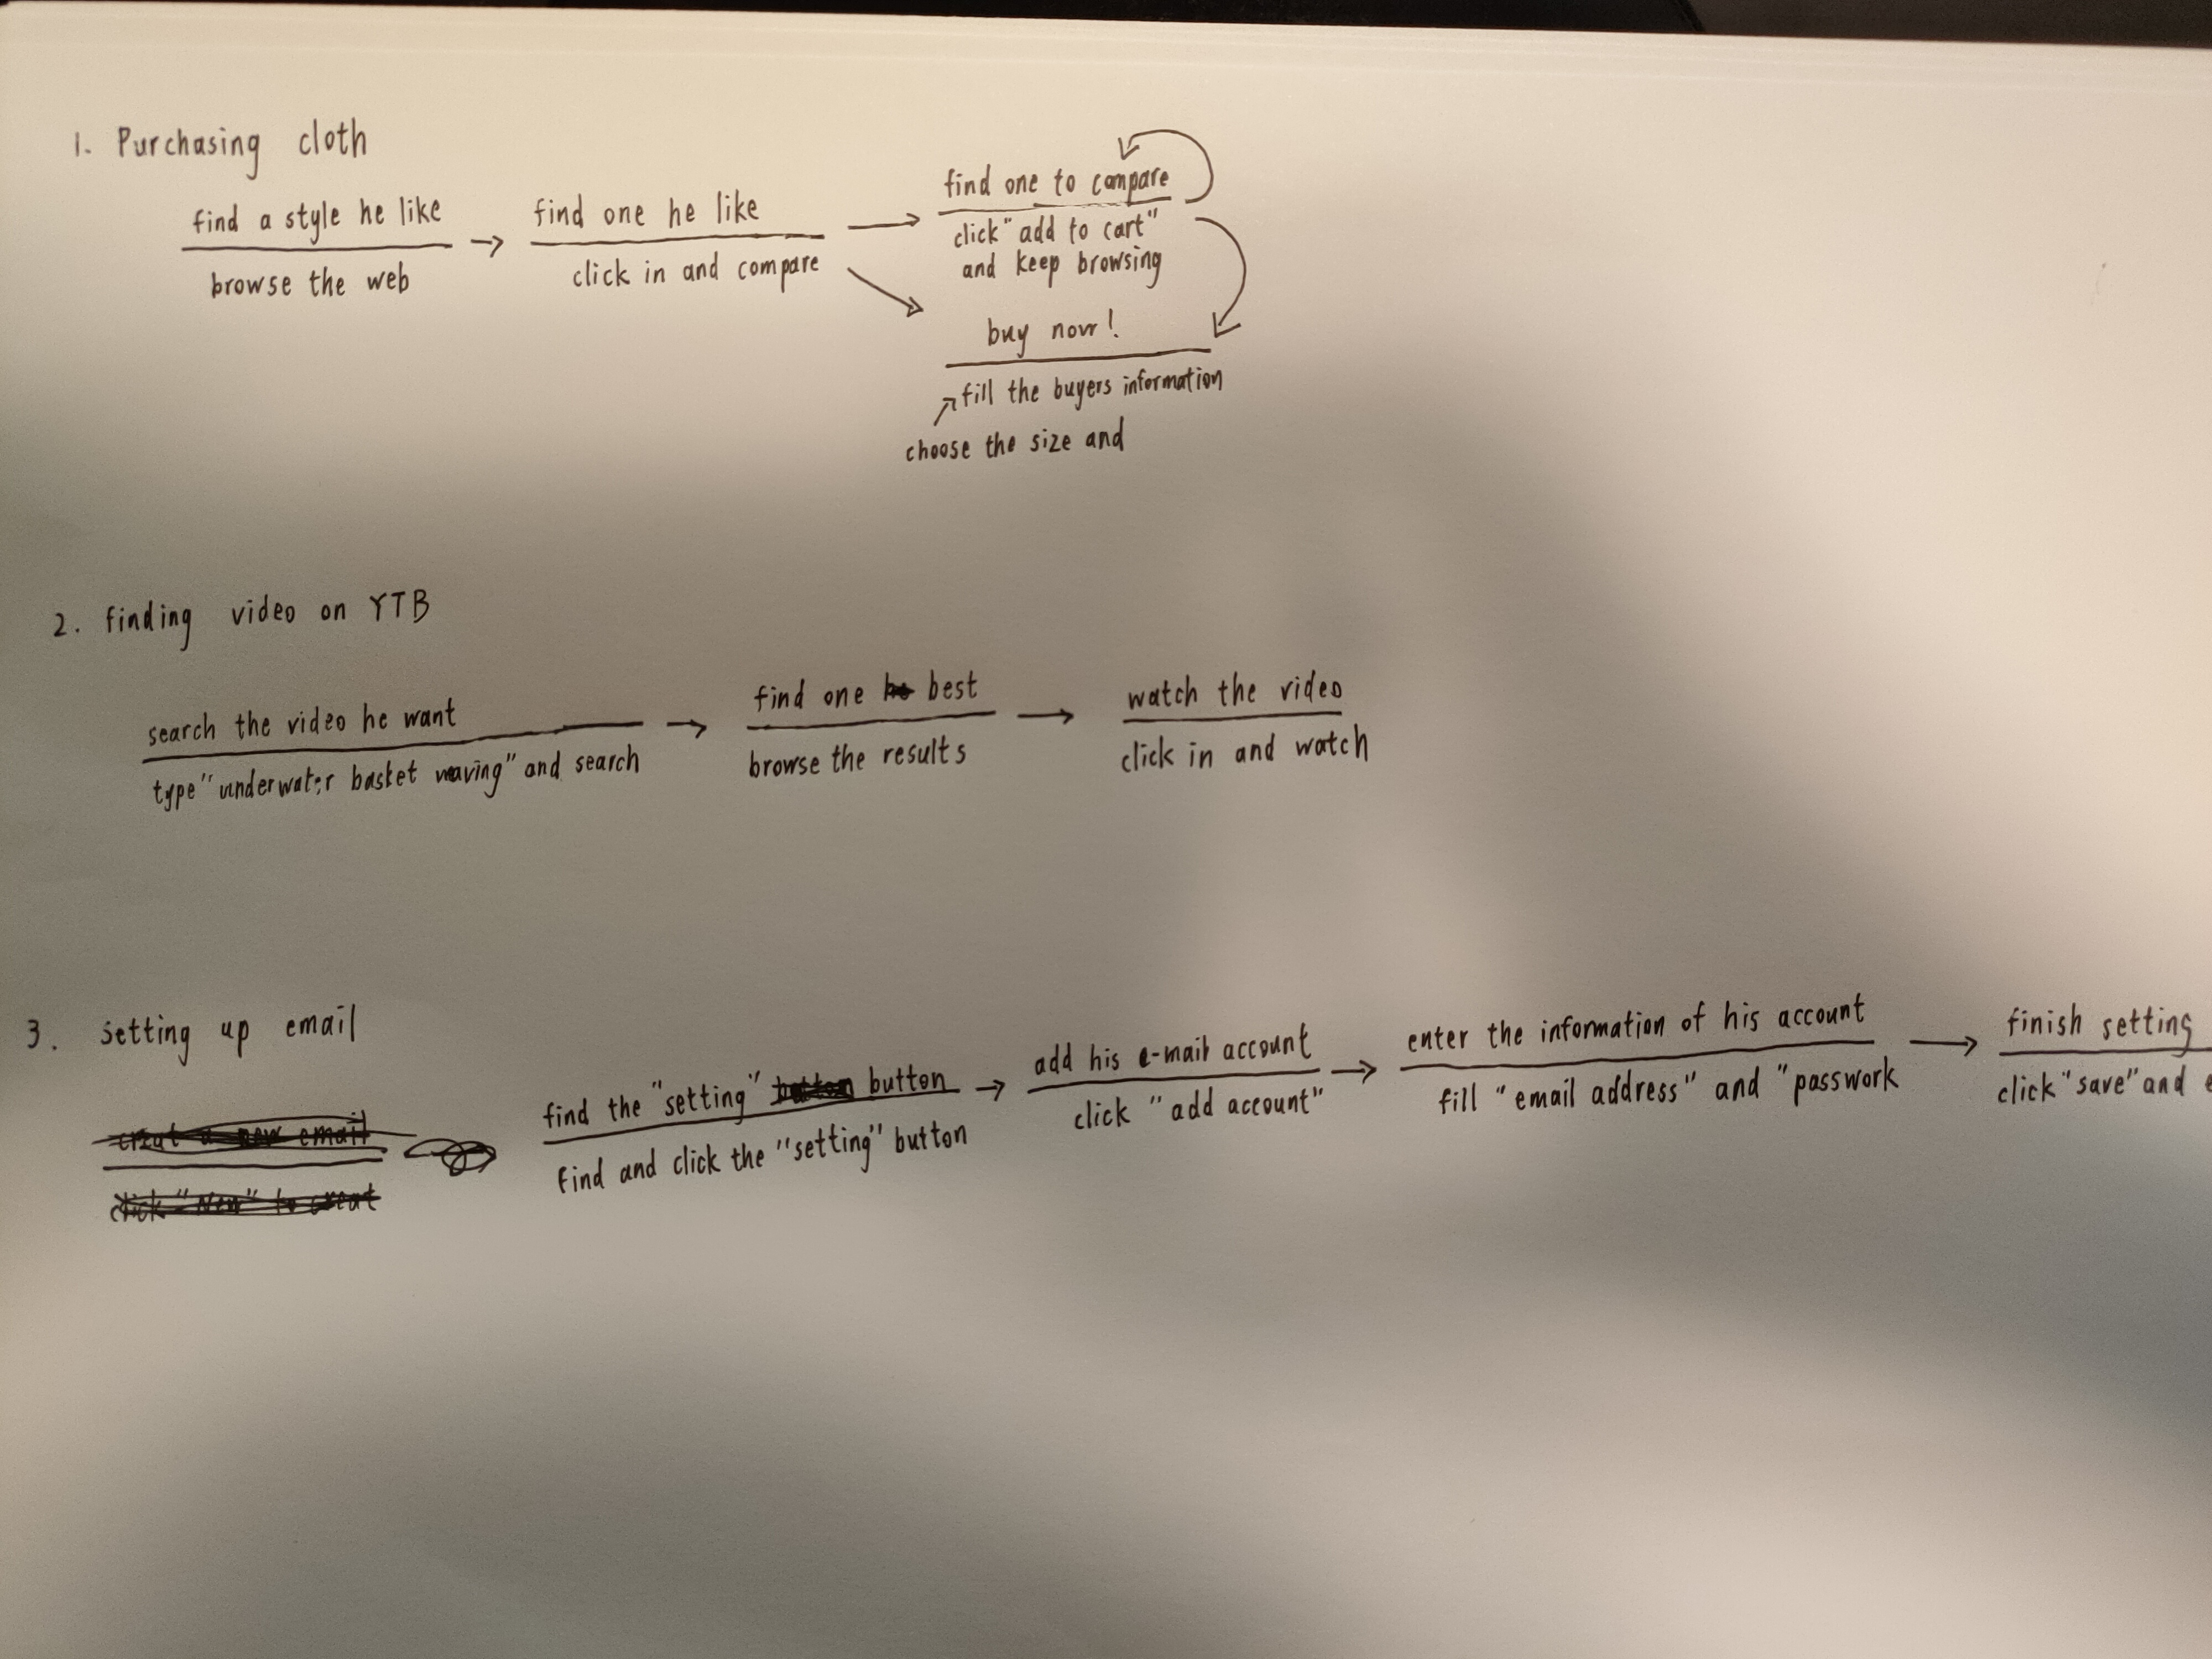 1. Purchasing cloth
find a style he like
browse the web
find one he like
click in and compare
find one to compare
click "add to cart"
and keep browsing
buy now!
fill the buyers information
choose the size and
2. finding video on YTB
search the video he want
type "underwater basket waving" and search
find one best
browse the results
watch the video
click in and watch
3. setting up email
creat a new email
click "New" to creat
find the "setting" button
find and click the "setting" button
add his e-mail account
click "add account"
enter the information of his account
fill "email address" and "passwork
finish setting
click "save" and